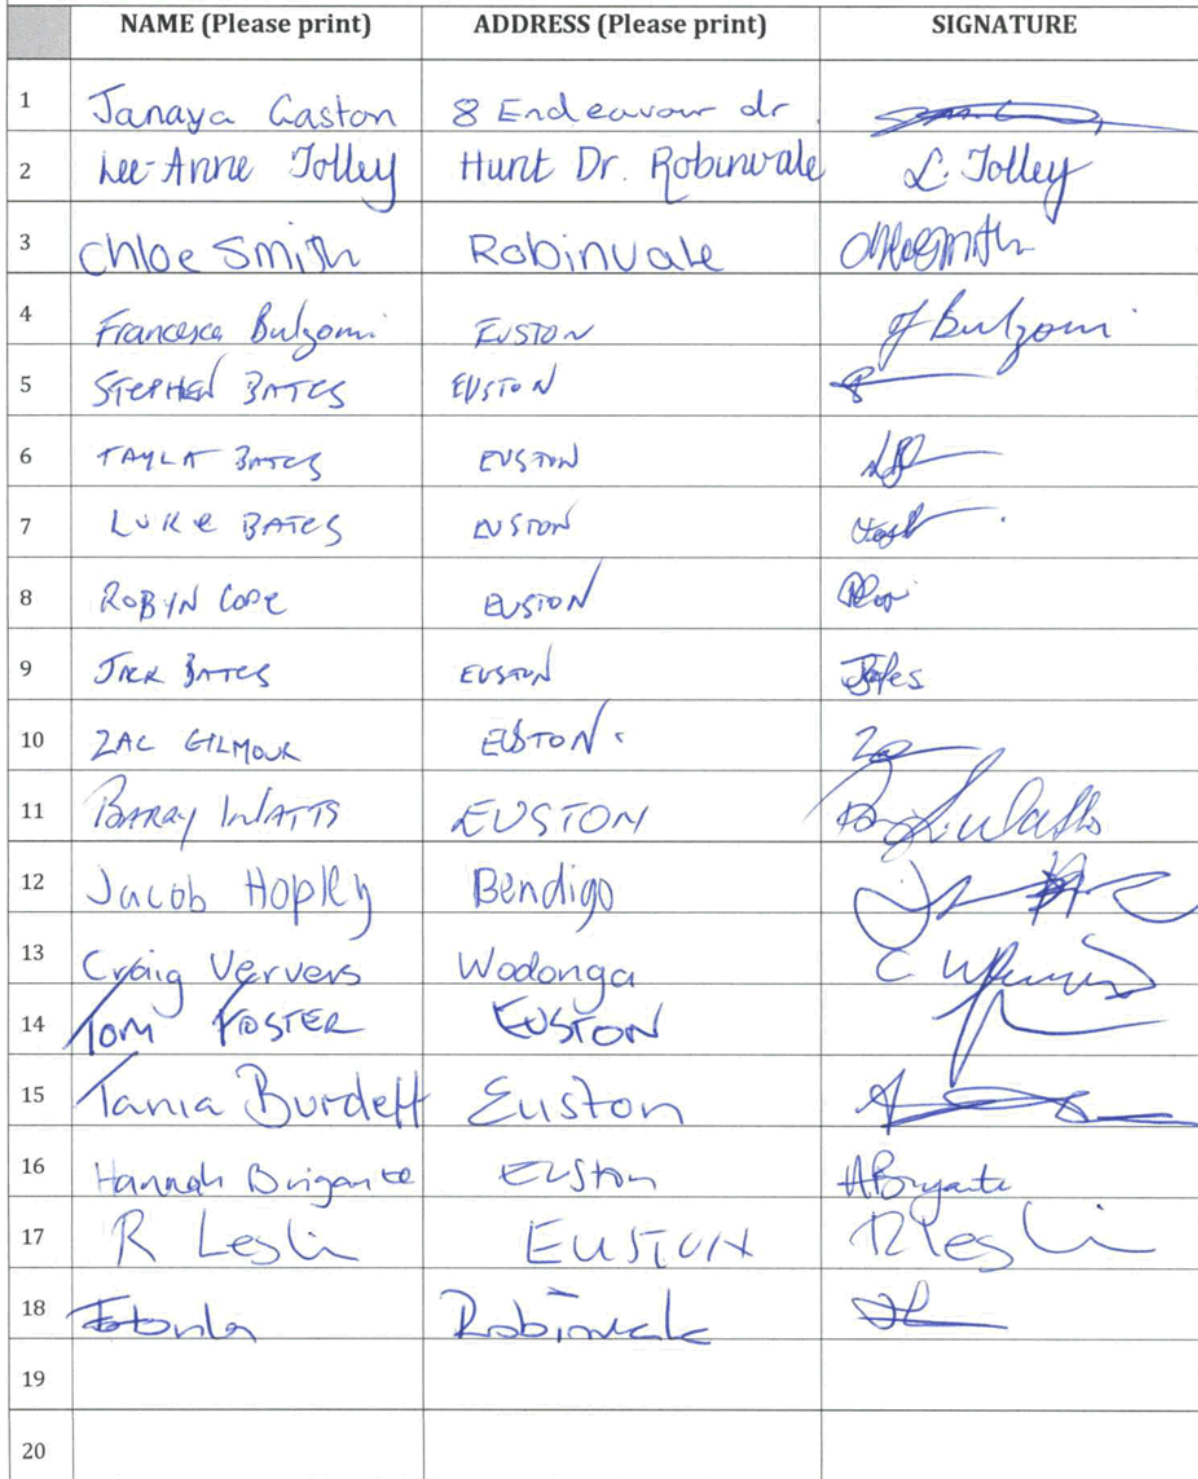 NAME (Please print) ADDRESS (Please print) SIGNATURE
1 Janaya Gaston 8 Endeavour dr.
2 Lee-Anne Tolley Hunt Dr. Robinvale L. Tolley
3 Chloe Smith Robinvale Chloe Smith
4 Francesca Bulzomi EUSTON f Bulzomi
5 STEPHEN BATES EUSTON
6 TAYLA BATES EUSTON
7 LUKE BATES EUSTON
8 ROBYN COPE EUSTON
9 JACK BATES EUSTON
10 ZAC GILMOUR EUSTON.
11 BARRY WATTS EUSTON
12 Jacob Hopley Bendigo
13 Craig Ververs Wodonga
14 Tom FOSTER EUSTON
15 Tania Burdett Euston
16 Hannah Brigante Euston
17 R Leslie EUSTON R Leslie
18 Robinvale
19
20